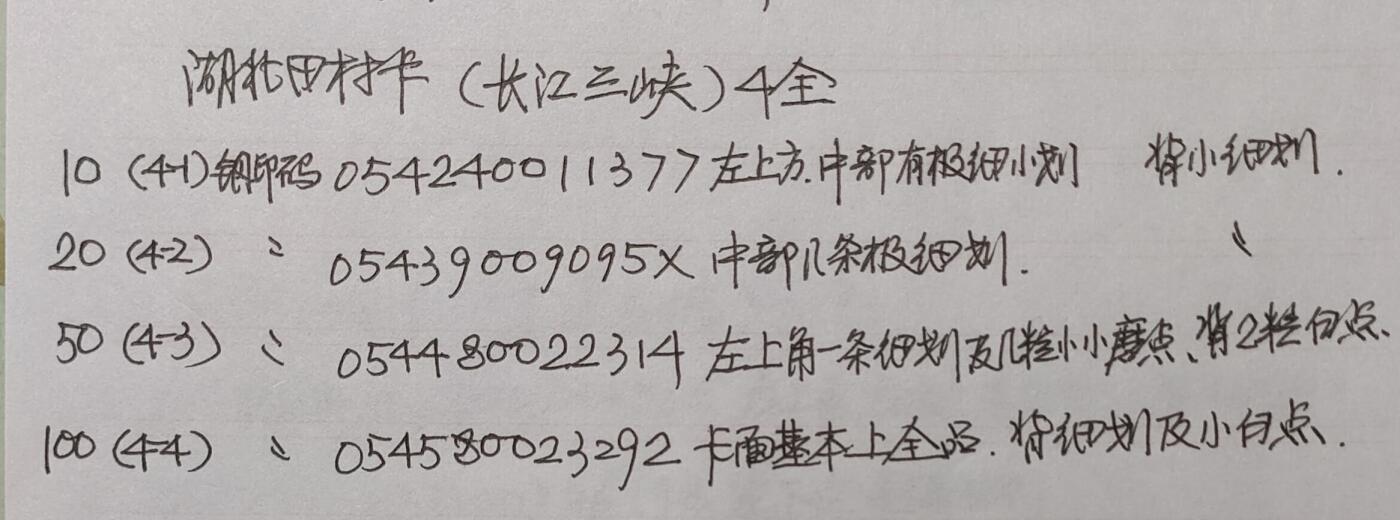 湖北田村卡（长江三峡）4全
10 (4-1) 钢印码 054240011377 左上方.中部有极细小划 背小细划.
20 (4-2) 〃 05439009095X 中部几条极细划. 〃
50 (4-3) 〃 054480022314 左上角一条细划及几粒小小磨点、背2粒白点、
100 (4-4) 〃 054580023292 卡面基本上全品. 背细划及小白点.